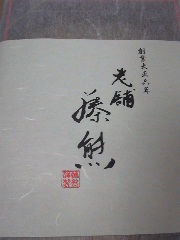 創業大正六年
老舗
藤熊